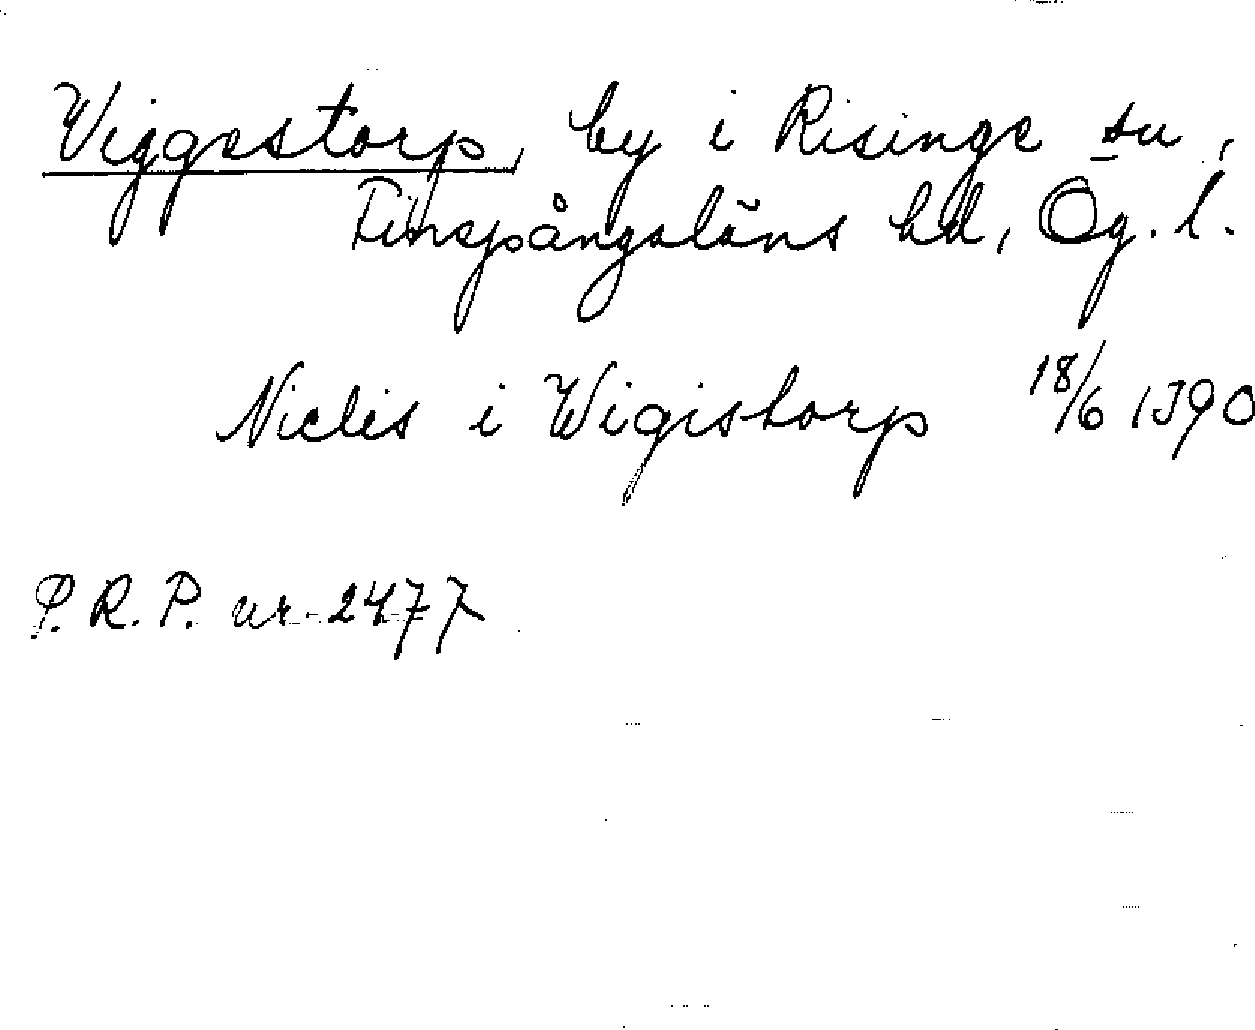 Viggestorp, by i Risinge sn,
Finspångaläns hd, Ög. l.
Niclis i Wigistorp 18/6 1390
P. R. P. nr. 2477